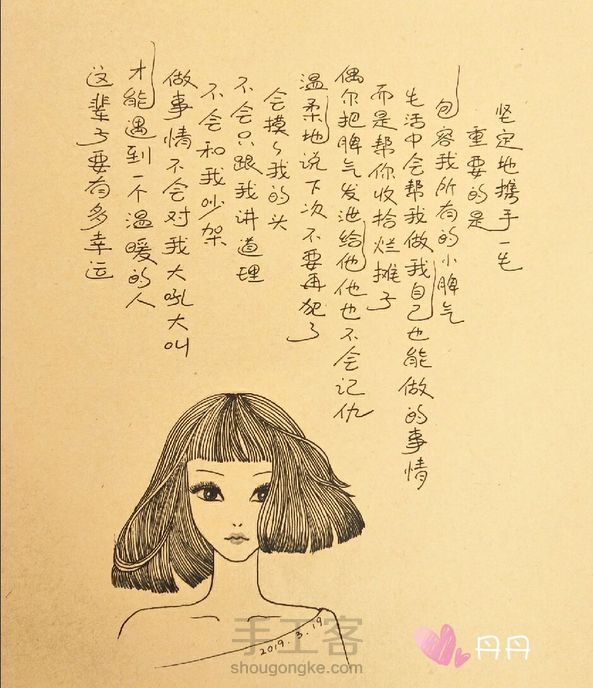 这辈子要有多幸运
才能遇到一个温暖的人
做事情不会对我大吼大叫
不会和我吵架
不会只跟我讲道理
会摸々我的头
温柔地说下次不要再犯了
偶尔把脾气发泄给他他也不会记仇
而是帮你收拾烂摊子
生活中会帮我做我自己也能做的事情
包容我所有的小脾气
重要的是
坚定地携手一生
2019.3.19
手工客
shougongke.com
丹丹